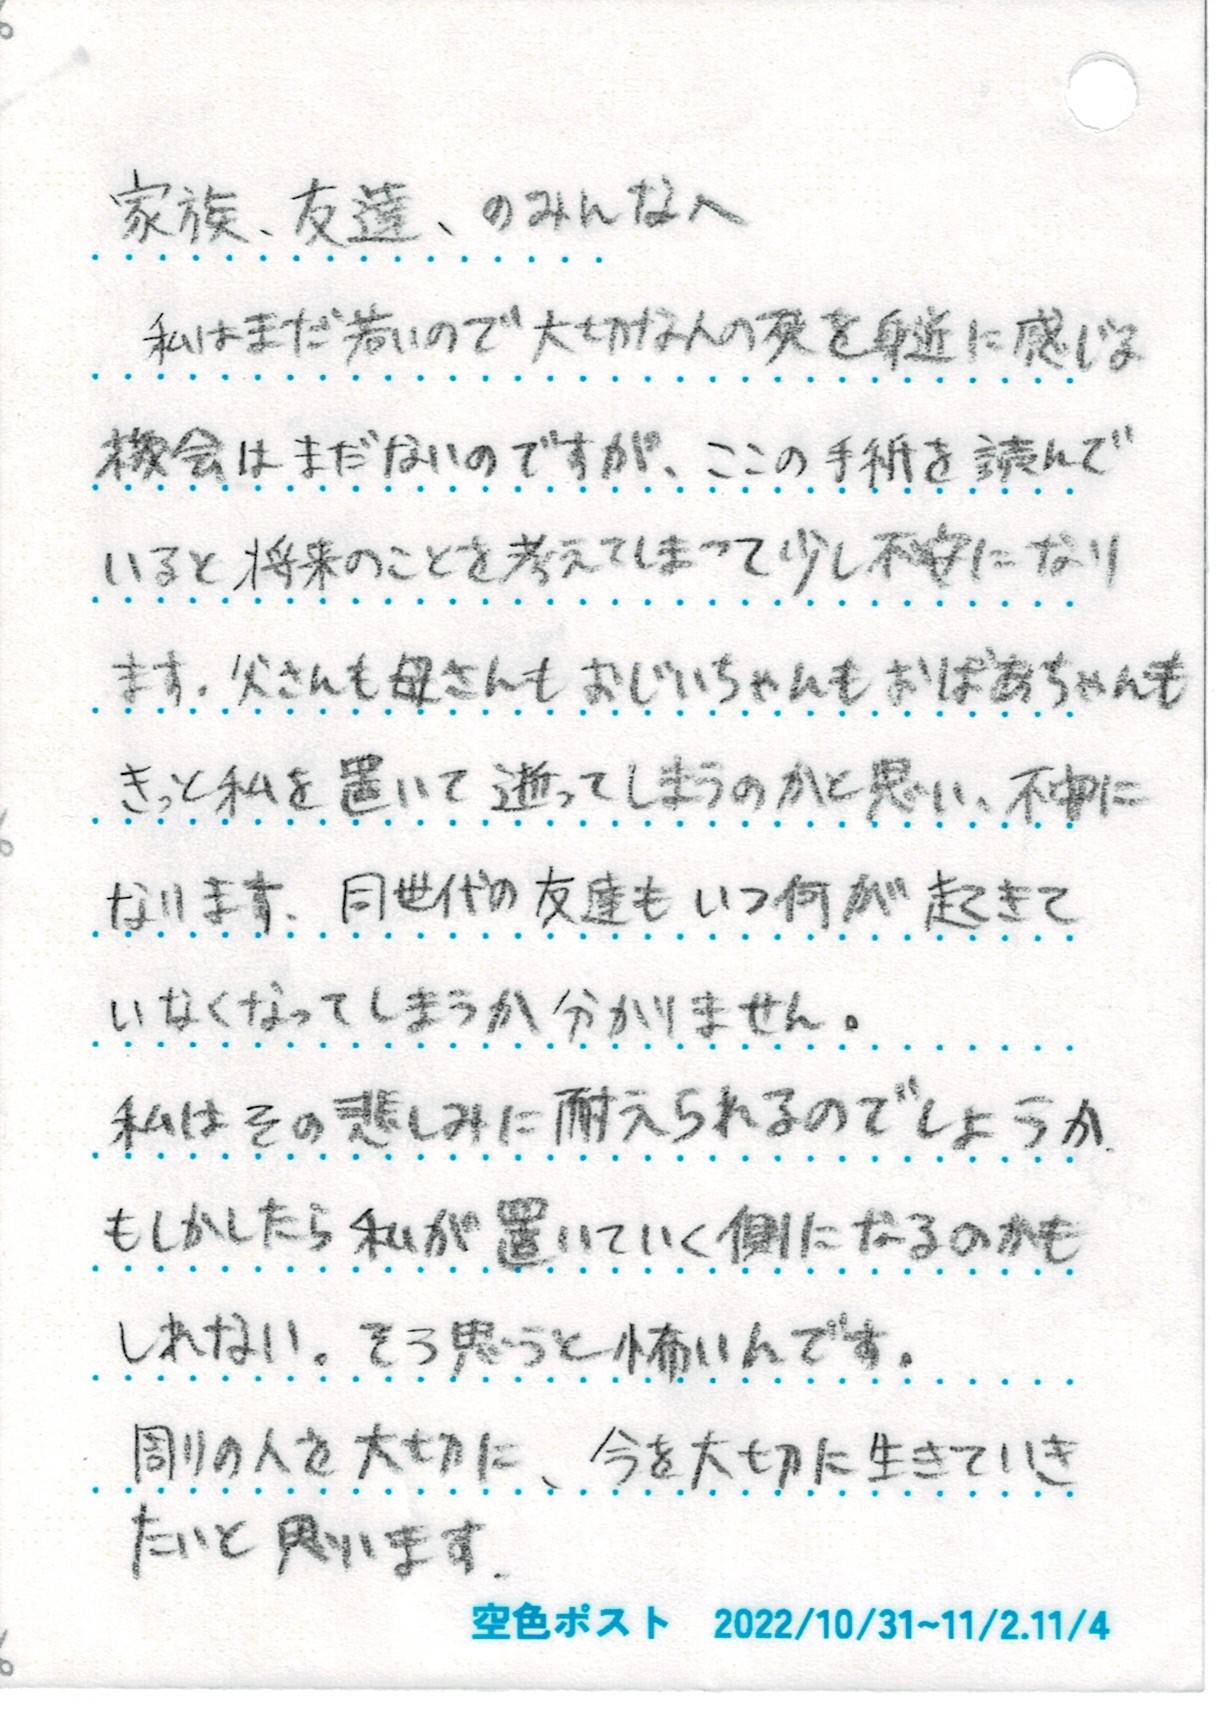 家族、友達、のみんなへ
私はまだ若いので大切な人の死を身近に感じる
機会はまだないのですが、ここの手紙を読んで
いると将来のことを考えてしまって少し不安になり
ます。父さんも母さんもおじいちゃんもおばあちゃんも
きっと私を置いて逝ってしまうのかと思い、不安に
なります。同世代の友達もいつ何が起きて
いなくなってしまうか分かりません。
私はその悲しみに耐えられるのでしょうか.
もしかしたら私が置いていく側になるのかも
しれない。そう思うと怖いんです。
周りの人を大切に、今を大切に生きていき
たいと思います.
空色ポスト 2022/10/31~11/2.11/4